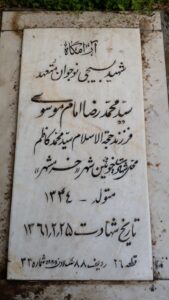 آرامگاه
شهید بسیجی نوجوان متعهد
سید محمد رضا امام موسوی
فرزند حجة الاسلام سید محمد کاظم
شهر «خرمشهر»
متولد - ۱۳۴۴
تاریخ شهادت ۱۳۶۱٫۲٫۲۵
قطعه ۲۶ ردیف ۸۸ شماره ۳۲